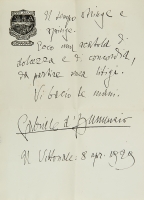 Il tempo stringe e
spinge.
Ecco una scatola di
dolcezza e di concordia,
da partire senza litigi.
Vi bacio le mani.
Gabriele d'Annunzio
Il Vittoriale: 8 apr. 1929